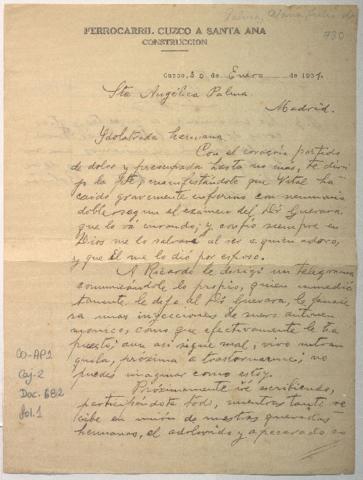 Palma, Elena Julia de
730
FERROCARRIL CUZCO A SANTA ANA
CONSTRUCCION
Cuzco, 30 de Enero de 1931.
Sta Angélica Palma
Madrid.
Idolatrada hermana
Con el corazón partido
de dolor y preocupada hasta no más, te diri
jo la pte, manifestándote que Vital ha
caido gravemente enfermo con neumonia
doble segun el exámen del Dr Guevara,
que lo vá curando; y confio siempre en
Dios me lo salvará al ser a quien adoro,
y que El me lo dió por esposo.
A Ricardo le dirigí un telegrama
comunicándole lo propio, quien inmedia
tamente, le dijo al Dr Guevara, le
unas inyecciones de suero antineu
monico, cómo que efectivamente le ha
puesto; aun asi sigue mal, vivo intran
quila, próxima a trastornarme; no
puedes imaginar como estoy.
Próximamente te escribiendo,
participándote todo, mientras tanto re
cibe en unión de nuestras queridas
hermanas, el adolorido y apesarado co
CO-AP1
Caj-2
Doc. 682
fol.1